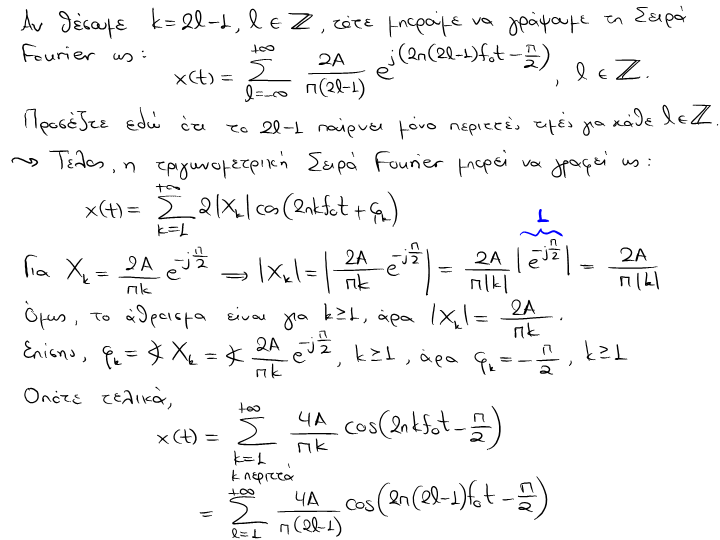 Αν θέσουμε k=2l-1, l ∈ ℤ, τότε μπορούμε να γράψουμε τη Σειρά
Fourier ως:
x(t) = \sum_{l=-∞}^{+∞} \frac{2A}{π(2l-1)} e^{j(2π(2l-1)f₀t - \frac{π}{2})}, l ∈ ℤ.
Προσέξτε εδώ ότι το 2l-1 παίρνει μόνο περιττές τιμές για κάθε l∈ℤ.
⇝ Τέλος, η τριγωνομετρική Σειρά Fourier μπορεί να γραφεί ως:
x(t) = \sum_{k=1}^{+∞} 2|X_k| cos(2πkf₀t + φ_k)
Για X_k = \frac{2A}{πk} e^{-j\frac{π}{2}} ⟹ |X_k| = |\frac{2A}{πk} e^{-j\frac{π}{2}}| = \frac{2A}{π|k|} \overbrace{|e^{-j\frac{π}{2}}|}^{1} = \frac{2A}{π|k|}
Όμως, το άθροισμα είναι για k≥1, άρα |X_k| = \frac{2A}{πk}.
Επίσης, φ_k = ∢ X_k = ∢ \frac{2A}{πk} e^{-j\frac{π}{2}}, k≥1, άρα φ_k = -\frac{π}{2}, k≥1
Οπότε τελικά,
x(t) = \sum_{k=1, k περιττά}^{+∞} \frac{4A}{πk} cos(2πkf₀t - \frac{π}{2})
= \sum_{l=1}^{+∞} \frac{4A}{π(2l-1)} cos(2π(2l-1)f₀t - \frac{π}{2})